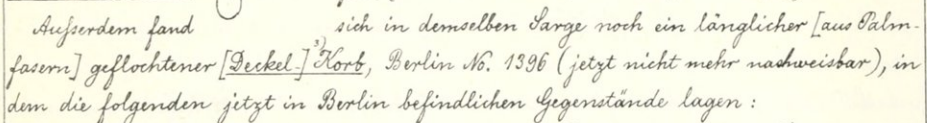 Außerdem fand sich in demselben Sarge noch ein länglicher [aus Palm-
fasern] geflochtener [Deckel-]³⁾Korb, Berlin No. 1396 (jetzt nicht mehr nachweisbar), in
dem die folgenden jetzt in Berlin befindlichen Gegenstände lagen: